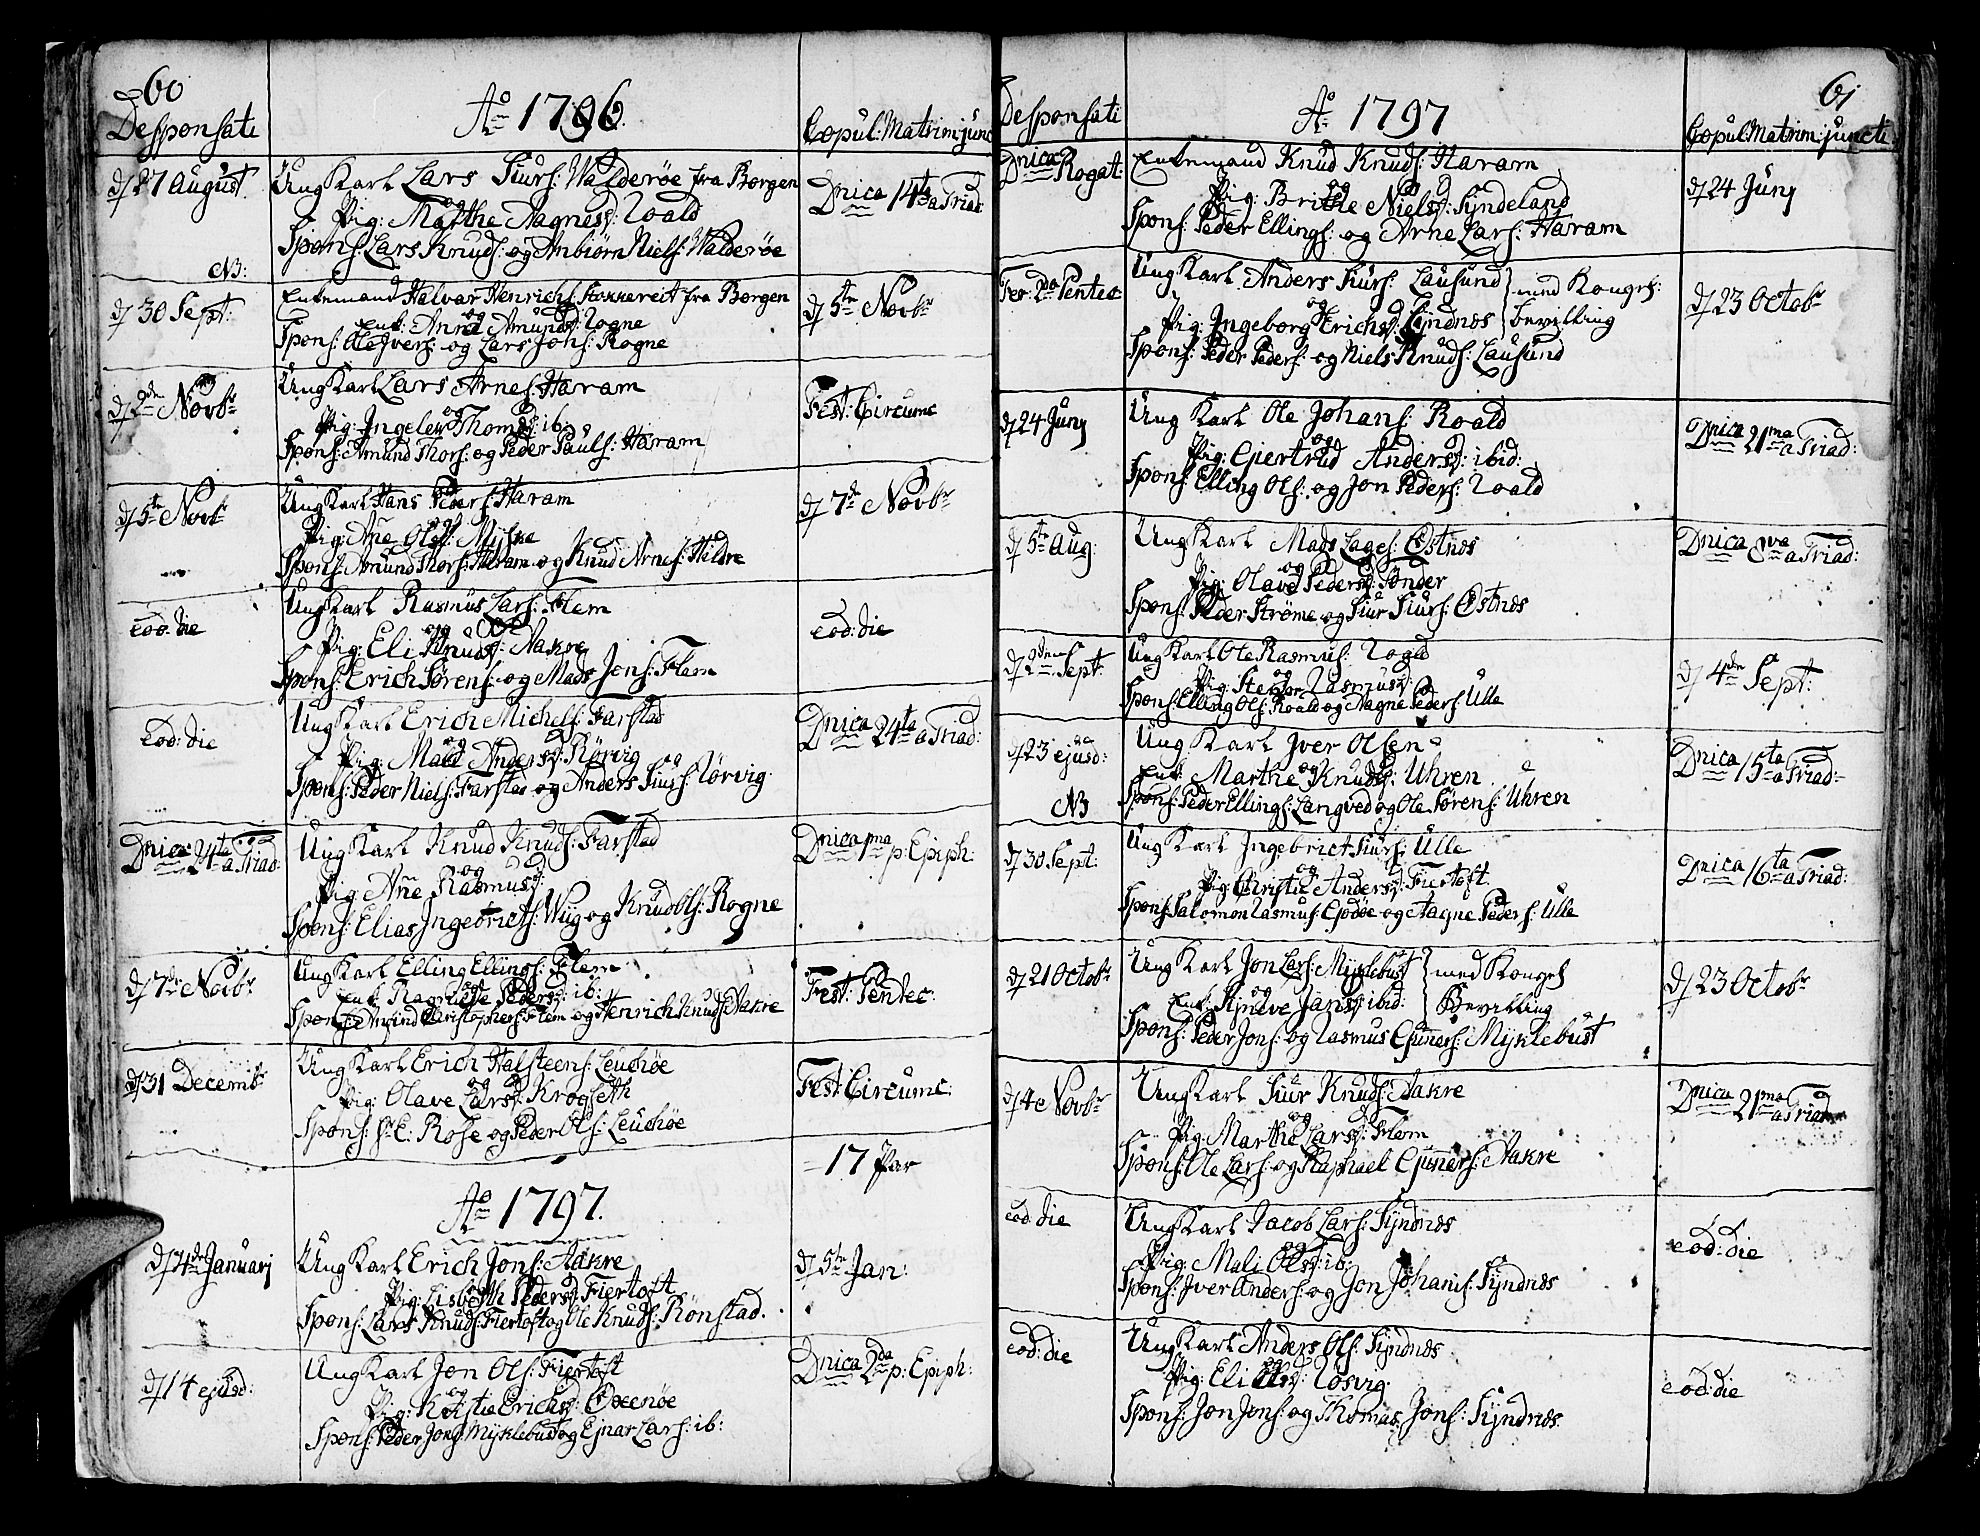 60
Desponsati
Ao 1796.
Copul: Matrim: junc
d 27 August.
Ung Karl Lars Siurs: Walderøe fra Borgen
og
Pig: Marthe Aagnesd: Roald
Spons: Lars Knuds: og Anbiørn Niels: Walderøe
Dnica 14ta a Triad
NB:
d 30 Sept:
Enkemand Halvar Henrichs: fra Borgen
og
Enk: Anna Amundsd: Rogne
Spons: Ole Ivers: og Lars Jons: Rogne
d 5te Novbr
d 2den Novbr
Ung Karl Lars Arnes: Haram
og
Pig: Thomesd: ib:
Spons: Amund Thors: og Peder Pauls: Haram
Fest: Circumc
d 5te Novbr
Ung Karl Hans Peders: Haram
og
Pig: Ane Olsd: Myhre
Spons: Amund Thors: Haram og Knud Arnes: Hildre
d 7de Novbr
eod: die
Ung Karl Rasmus Lars: Flem
og
Pig: Eli Knudsd: Aakre
Spons: Erich Sørens: og Mads Jens: Flem
eod: die
eod: die
Ung Karl Erich Michels: Farstad
og
Pig: Mali Andersd: Rørvig
Spons: Peder Niels: Farstad og Anders Siurs: Rørvig
Dnica 24ta a Triad:
Dnica 24ta a Triad:
Ung Karl Knud Knuds: Farstad
og
Pig: Ane Rasmusd:
Spons: Elias Ingebricts: Wiig og Knud Ols: Rogne
Dnica 1ma p: Epiph:
d 7de Novbr
Ung Karl Elling Ellings: Flem
og
Enk: Pedersd: ib:
Spons: Amund Christophers: Flem og Henrich Knuds: Aakre
Fest: Pentec:
d 31 Decembr
Ung Karl Erich Halsteens: Leuchøe
og
Pig: Olave Larsd: Krogseth
Spons: Sr E: Rose og Peder Ols: Leuchøe
Fest: Circumc:
– 17 Par
Ao 1797.
d 4de Januarj
Ung Karl Erich Jons: Aakre
Pig: Lisbeth Pedersd: Fiertoft
Spons: Lars Knuds: Fiertoft og Ole Knuds: Rønstad.
d 5te Jan:
d 14 ejusd:
Ung Karl Jon Ols: Fiertoft
og
Pig: Kirstie Erichsd: Oxenøe
Spons: Peder Jons: Myklebust og Ejnar Lars: ib:
Dnica 2da p: Epiph:
61
Desponsati
Ao 1797
Copul: Matrim: juncti
Dnica Rogat:
Enkemand Knud Knuds: Haram
og
Pig: Brithe Nielsd: Syndeland
Spons: Peder Ellings: og Arne Lars: Haram
d 24 Junj
Fer: 2da Pentec
Ung Karl Anders Siurs: Lausund } med Konges:
og
Pig: Ingeborg Erichsd: Syndnes } bevilling
Spons: Peder Peders: og Niels Knuds: Lausund
d 23 Octobr
d 24 Junj
Ung Karl Ole Johans: Roald
og
Pig: Giertrud Andersd: ibid:
Spons: Elling Ols: og Jon Peders: Roald
Dnica 21ma a Triad:
d 5te Aug:
Ung Karl Mads Lages: Østnes
og
Pig: Olave Pedersd: Sønder
Spons: Peder Strøme og Siur Siurs: Østnes
Dnica 8va a Triad:
d 2den Sept:
Ung Karl Ole Rasmus: Roald
og
Pig: Rasmusd:
Spons: Elling Ols: Roald og Aagne Peders: Ulle
d 4de Sept:
d 23 ejusd:
Ung Karl Iver Olsen
og
Enk: Marthe Knudsd: Uhren
Spons: Peder Ellings: Langved og Ole Sørens: Uhren
NB
Dnica 15ta a Triad:
d 30 Sept:
Ung Karl Ingebrict Siurs: Ulle
og
Pig: Christie Andersd: Fiertoft
Spons: Salomon Rasmus: og Aagne Peders: Ulle
Dnica 16ta a Triad:
d 21 Octobr
Ung Karl Jon Lars: Myklebust } med Konges
og
Enk: Synneve Jansd: ibid: } Bevilling
Spons: Peder Jons: og Rasmus Guners: Myklebust
d 23 Octobr
d 4e Novbr
Ung Karl Siur Knuds: Aakre
og
Pig: Marthe Larsd: Flem
Spons: Ole Lars: og Raphael Guners: Aakre
Dnica 21ma a Triad
eod: die
Ung Karl Jacob Lars: Syndnes
og
Pig: Mali Olsd: ib:
Spons: Iver Anders: og Jon Johans: Syndnes
eod: die
eod: die
Ung Karl Anders Ols: Syndnes
og
Pig: Eli Røsvig
Spons: Jon Jons: og Thomas Jons: Syndnes
eod: die